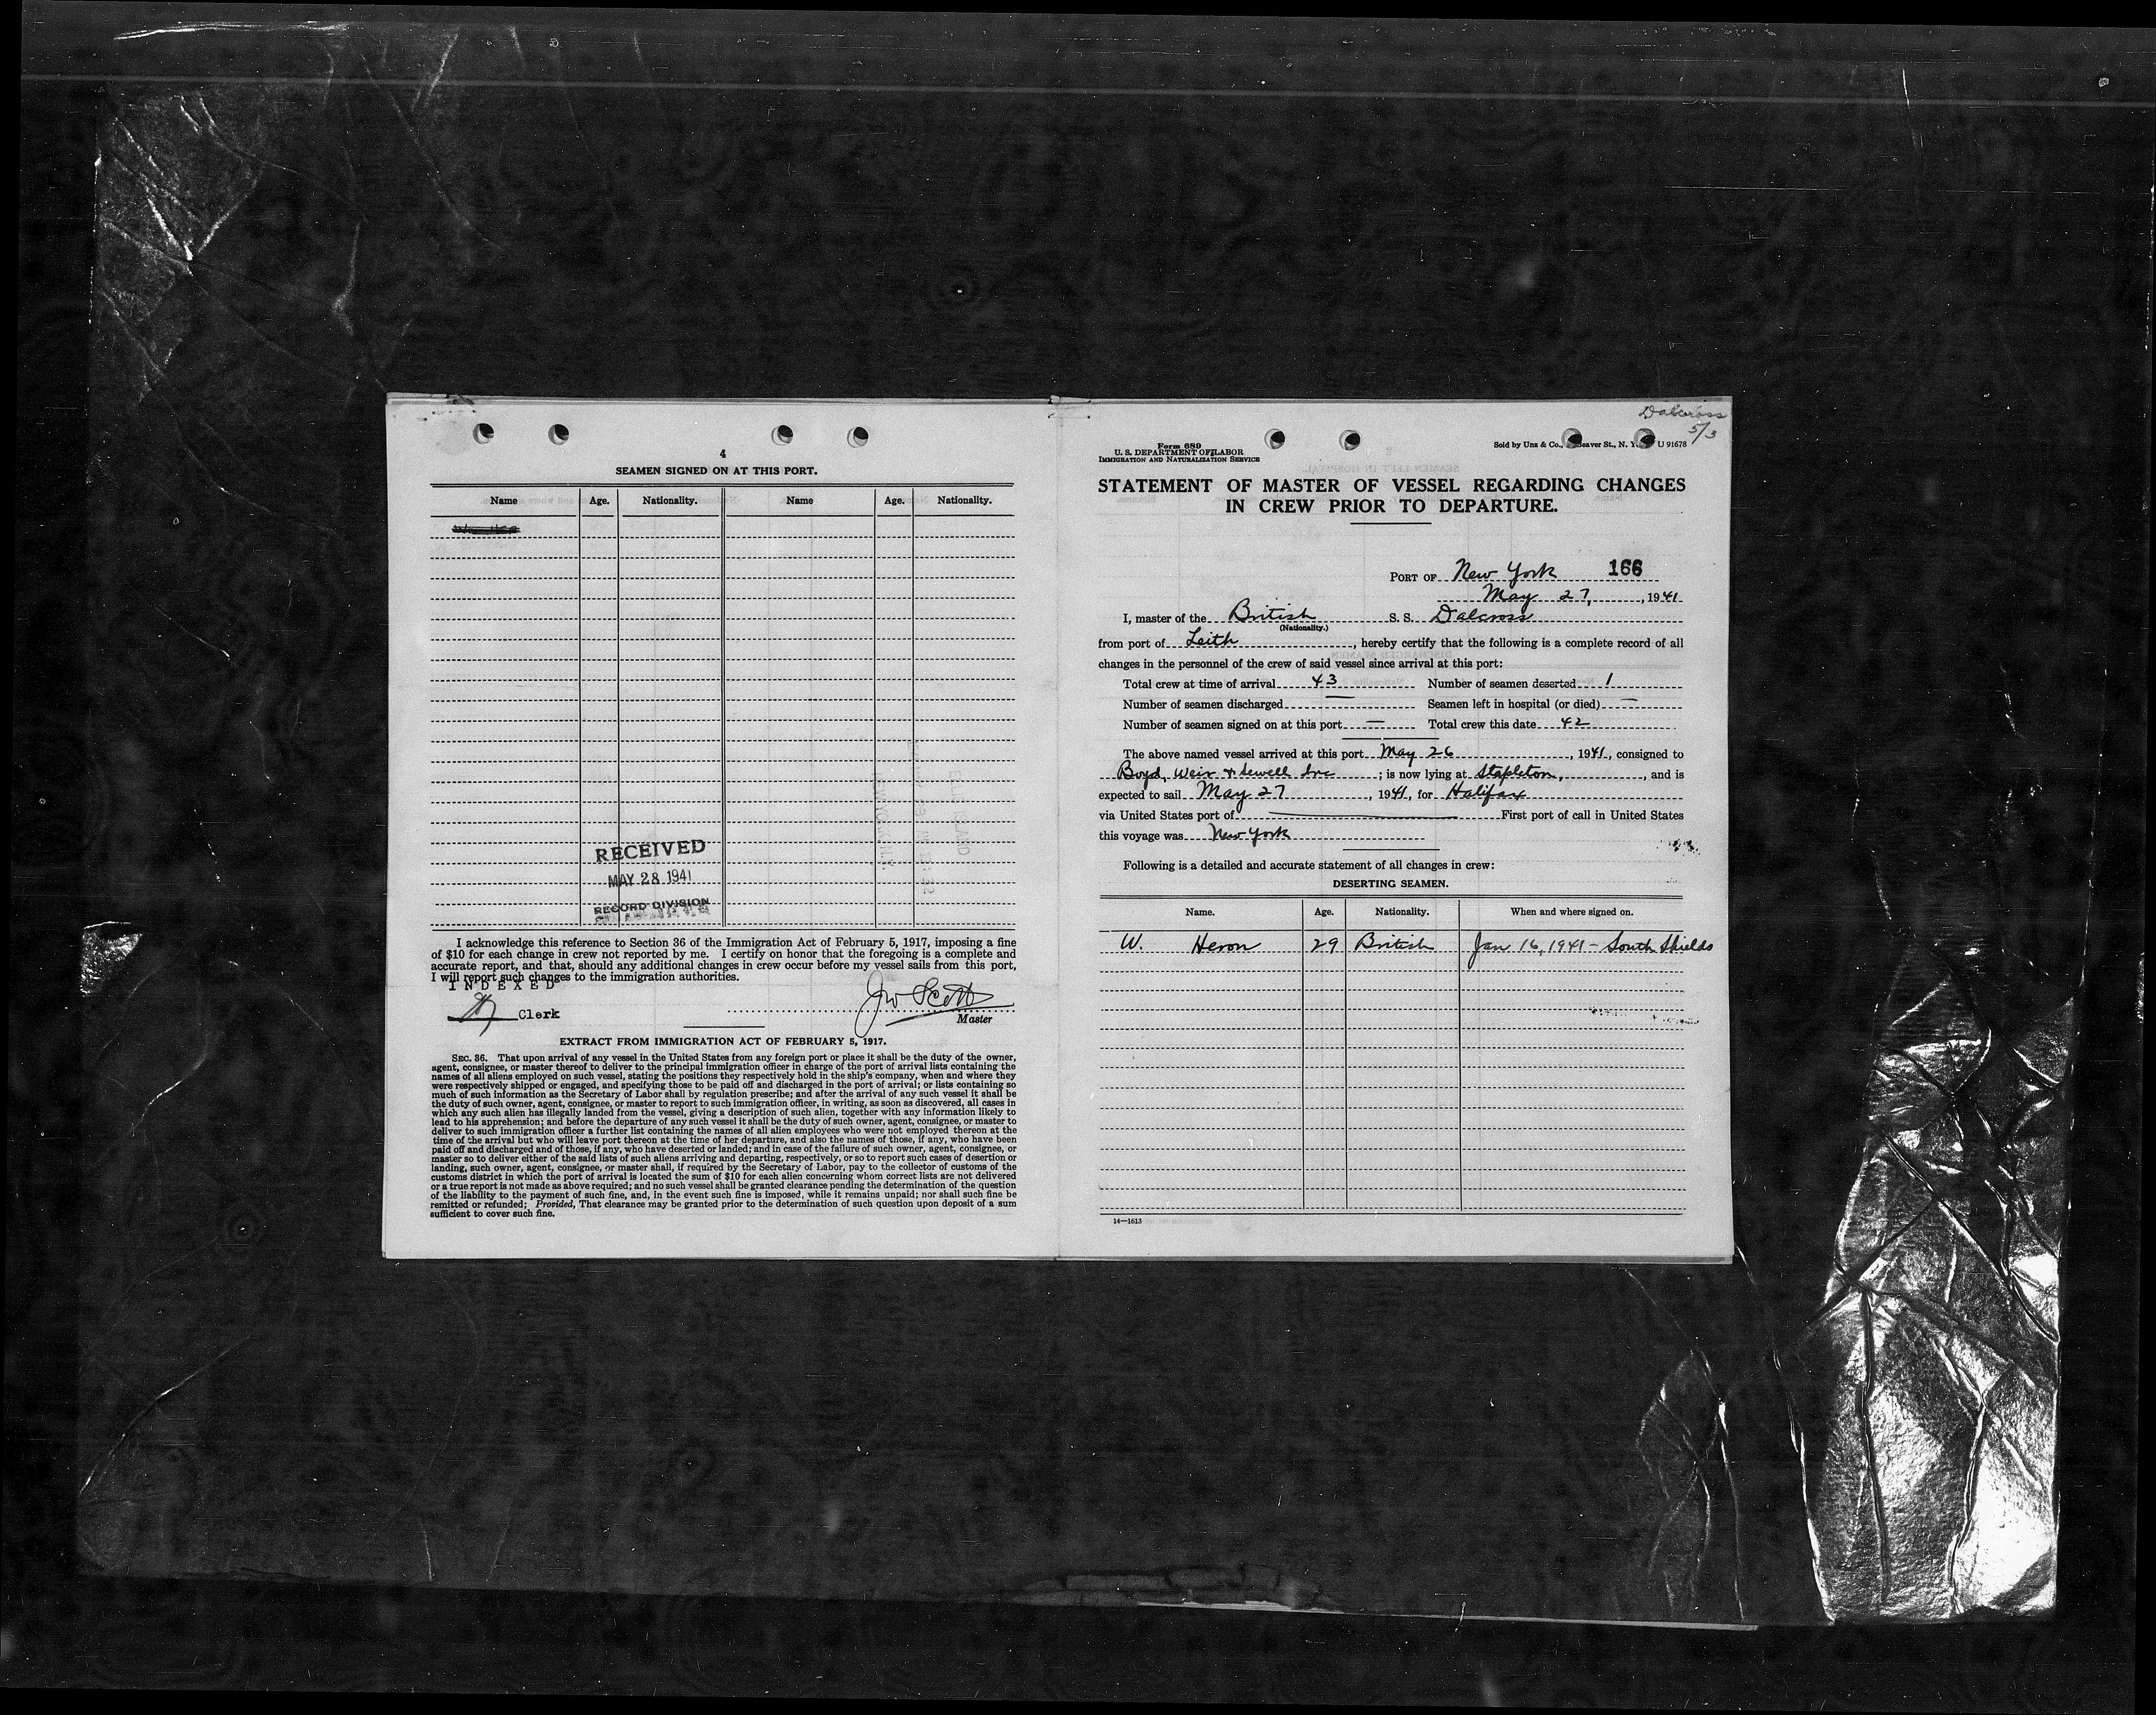 4
SEAMEN SIGNED ON AT THIS PORT.
Name Age. Nationality. Name Age. Nationality.
RECEIVED
MAY 28 1941
RECORD DIVISION
I acknowledge this reference to Section 36 of the Immigration Act of February 5, 1917, imposing a fine
of $10 for each change in crew not reported by me. I certify on honor that the foregoing is a complete and
accurate report, and that, should any additional changes in crew occur before my vessel sails from this port,
I will report such changes to the immigration authorities.
INDEXED
Clerk
Jno Scott
Master
EXTRACT FROM IMMIGRATION ACT OF FEBRUARY 5, 1917.
SEC. 36. That upon arrival of any vessel in the United States from any foreign port or place it shall be the duty of the owner,
agent, consignee, or master thereof to deliver to the principal immigration officer in charge of the port of arrival lists containing the
names of all aliens employed on such vessel, stating the positions they respectively hold in the ship's company, when and where they
were respectively shipped or engaged, and specifying those to be paid off and discharged in the port of arrival; or lists containing so
much of such information as the Secretary of Labor shall by regulation prescribe; and after the arrival of any such vessel it shall be
the duty of such owner, agent, consignee, or master to report to such immigration officer, in writing, as soon as discovered, all cases in
which any such alien has illegally landed from the vessel, giving a description of such alien, together with any information likely to
lead to his apprehension; and before the departure of any such vessel it shall be the duty of such owner, agent, consignee, or master to
deliver to such immigration officer a further list containing the names of all alien employees who were not employed thereon at the
time of the arrival but who will leave port thereon at the time of her departure, and also the names of those, if any, who have been
paid off and discharged and of those, if any, who have deserted or landed; and in case of the failure of such owner, agent, consignee, or
master so to deliver either of the said lists of such aliens arriving and departing, respectively, or so to report such cases of desertion or
landing, such owner, agent, consignee, or master shall, if required by the Secretary of Labor, pay to the collector of customs of the
customs district in which the port of arrival is located the sum of $10 for each alien concerning whom correct lists are not delivered
or a true report is not made as above required; and no such vessel shall be granted clearance pending the determination of the question
of the liability to the payment of such fine, and, in the event such fine is imposed, while it remains unpaid; nor shall such fine be
remitted or refunded; Provided, That clearance may be granted prior to the determination of such question upon deposit of a sum
sufficient to cover such fine.
Dalcross
5/3
Form 689
U. S. DEPARTMENT OF LABOR
IMMIGRATION AND NATURALIZATION SERVICE
Sold by Unz & Co., Beaver St., N. Y. U 91678
STATEMENT OF MASTER OF VESSEL REGARDING CHANGES
IN CREW PRIOR TO DEPARTURE.
PORT OF New York 166
May 27, 1941
I, master of the British S. S. Dalcross
(Nationality.)
from port of Leith, hereby certify that the following is a complete record of all
changes in the personnel of the crew of said vessel since arrival at this port:
Total crew at time of arrival 43 Number of seamen deserted 1
Number of seamen discharged — Seamen left in hospital (or died) —
Number of seamen signed on at this port — Total crew this date 42
The above named vessel arrived at this port May 26, 1941, consigned to
Boyd, Weir & Sewell Inc; is now lying at Stapleton, and is
expected to sail May 27, 1941, for Halifax
via United States port of — First port of call in United States
this voyage was New York
Following is a detailed and accurate statement of all changes in crew:
DESERTING SEAMEN.
Name. Age. Nationality. When and where signed on.
W. Heron 29 British Jan 16, 1941 – South Shields
14—1613